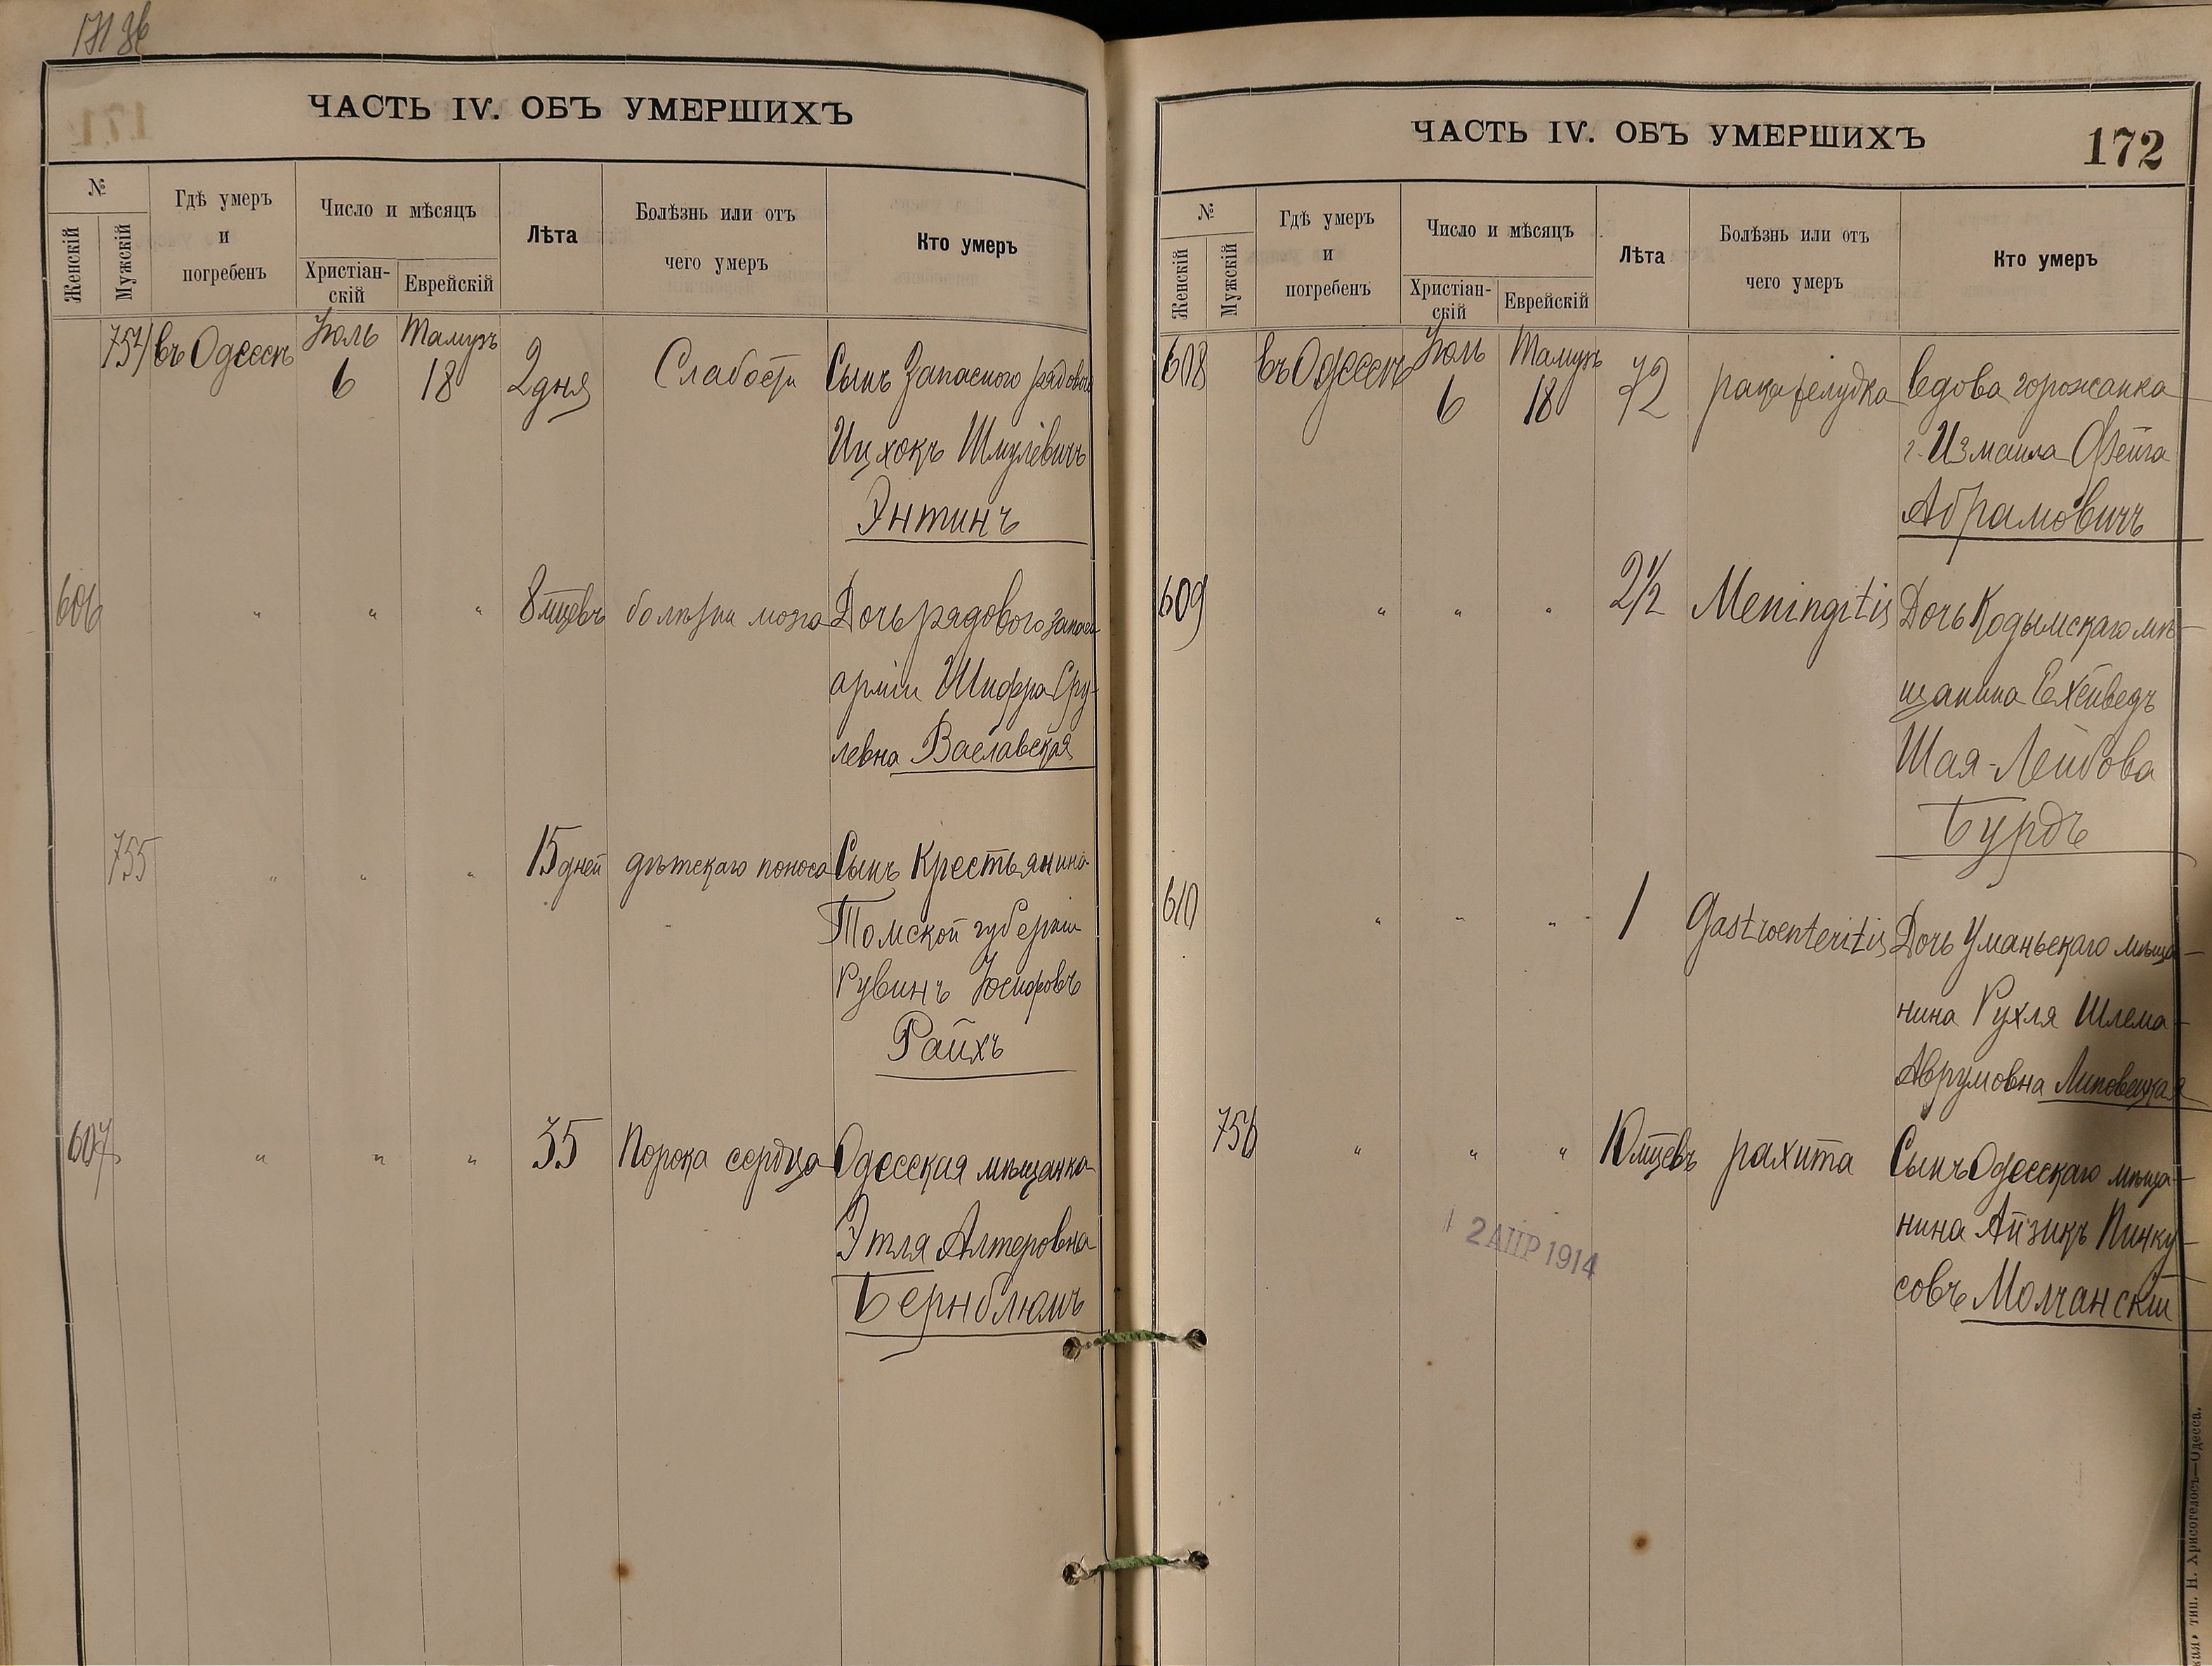 ЧАСТЬ IV. ОБЪ УМЕРШИХЪ
№
Женскій
Мужскій
Гдѣ умеръ
и
погребенъ
Число и мѣсяцъ
Христіан-
скій
Еврейскій
Лѣта
Болѣзнь или отъ
чего умеръ
Кто умеръ
754 въ Одессѣ Іюль 6 Тамузъ 18 2 дня Слабости Сынъ Запасного рядового
Ицхокъ Шмулевичъ
Энтинъ
606 " " " 8 мцевъ болѣзни мозга Дочь рядового запаса
арміи Шифра Сру-
левна Ваславская
755 " " " 15 дней дѣтскаго поноса Сынъ Крестьянина
Томской губерніи
Рувинъ Іосифовъ
Райхъ
607 " " " 35 Порока сердца Одесская мѣщанка
Этля Алтеровна
Бернблюмъ
ЧАСТЬ IV. ОБЪ УМЕРШИХЪ
172
№
Женскій
Мужскій
Гдѣ умеръ
и
погребенъ
Число и мѣсяцъ
Христіан-
скій
Еврейскій
Лѣта
Болѣзнь или отъ
чего умеръ
Кто умеръ
608 въ Одессѣ Іюль 6 Тамузъ 18 72 рака желудка вдова горожанка
г. Измаила Фейга
Абрамовичъ
609 " " " 2½ Meningitis Дочь Кодымскаго мѣ-
щанина Ехевведъ
Шая-Лейбова
Бурдъ
610 " " " 1 Gastroenteritis Дочь Уманьскаго мѣща-
нина Рухля Шлема-
Аврумовна Липовецкая
756 " " " 10 мцевъ рахита Сынъ Одесскаго мѣща-
нина Айзикъ Пинку-
совъ Молчанскій
2 АПР 1914
тип. Н. Хрисогелосъ—Одесса.